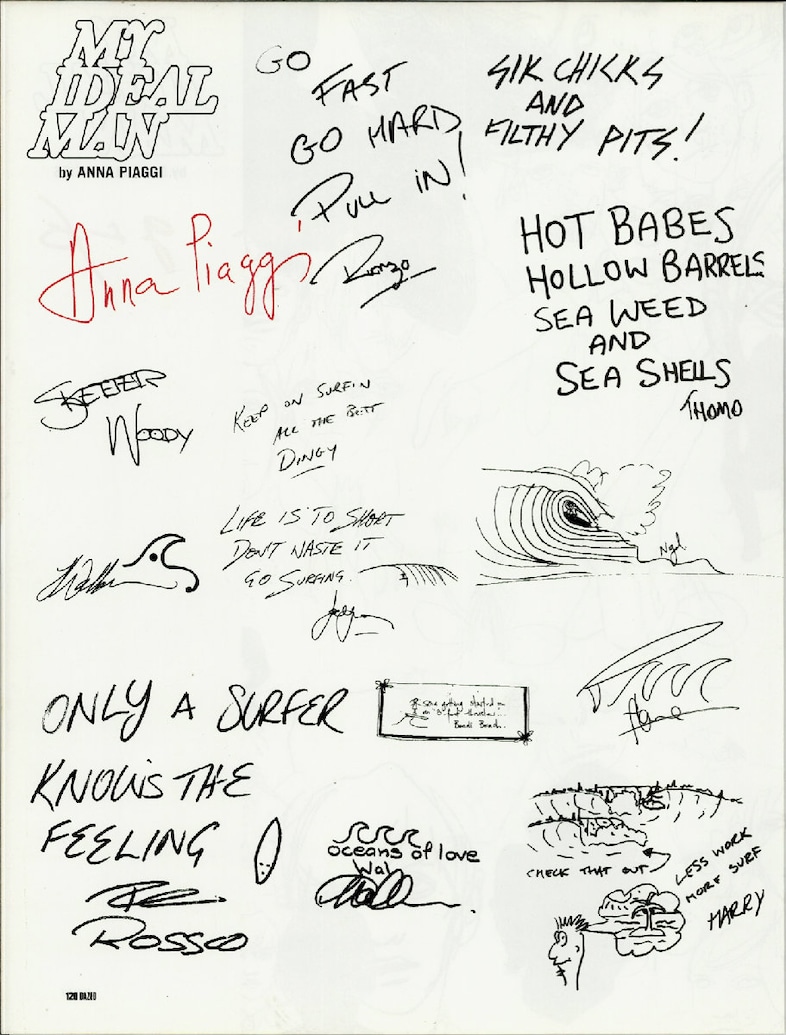 MY
IDEAL
MAN
by ANNA PIAGGI
GO
FAST
GO HARD
PULL IN!
Ronzo
SIK CHICKS
AND
FILTHY PITS!
Anna Piaggi
HOT BABES
HOLLOW BARRELS
SEA WEED
AND
SEA SHELLS
THOMO
SKEETER
WOODY
KEEP ON SURFIN
ALL THE BEST
DINGY
LIFE IS TO SHORT
DON'T WASTE IT
GO SURFING.
Nigel
ONLY A SURFER
KNOWS THE
FEELING
ROSSCO
Bondi Beach..
oceans of love
Wal
CHECK THAT OUT
LESS WORK
MORE SURF
HARRY
120 DAZED